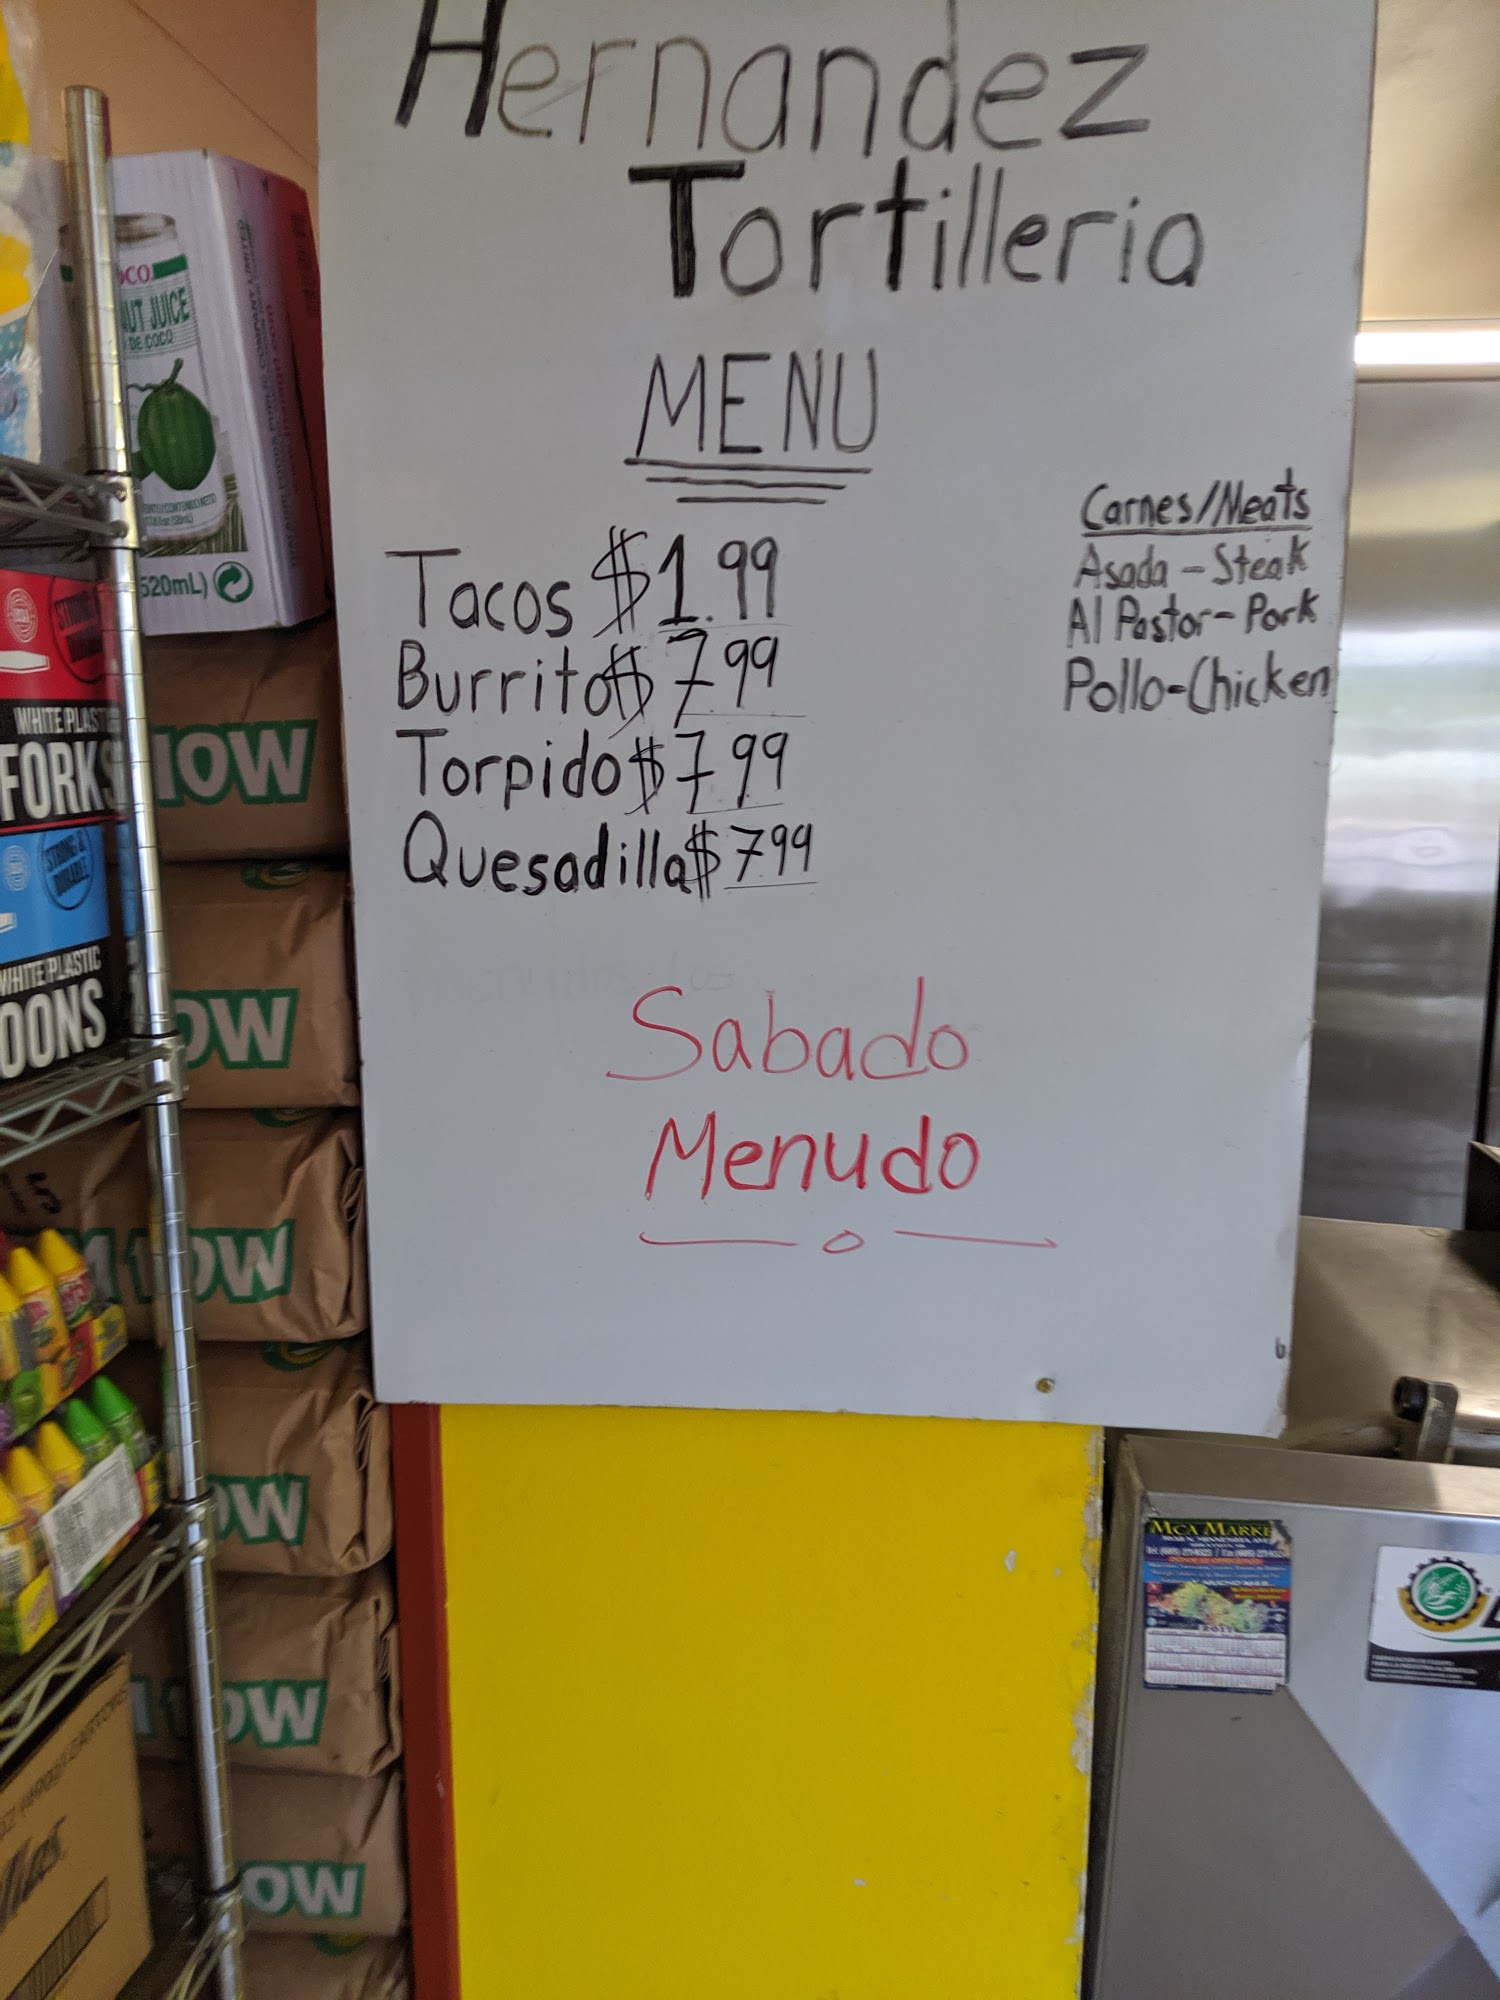 Hernandez
Tortilleria
MENU
Tacos $1.99
Burrito$ 7.99
Torpido $7.99
Quesadilla $7.99
Carnes/Meats
Asada - Steak
Al Pastor - Pork
Pollo - Chicken
Sabado
Menudo
OCO
NUT JUICE
DE COCO
520mL)
WHITE PLAST
FORKS
STRONG & DURABLE
WHITE PLASTIC
OONS
15
NOW
OW
OW
OW
OW
OW
MCA MARKE